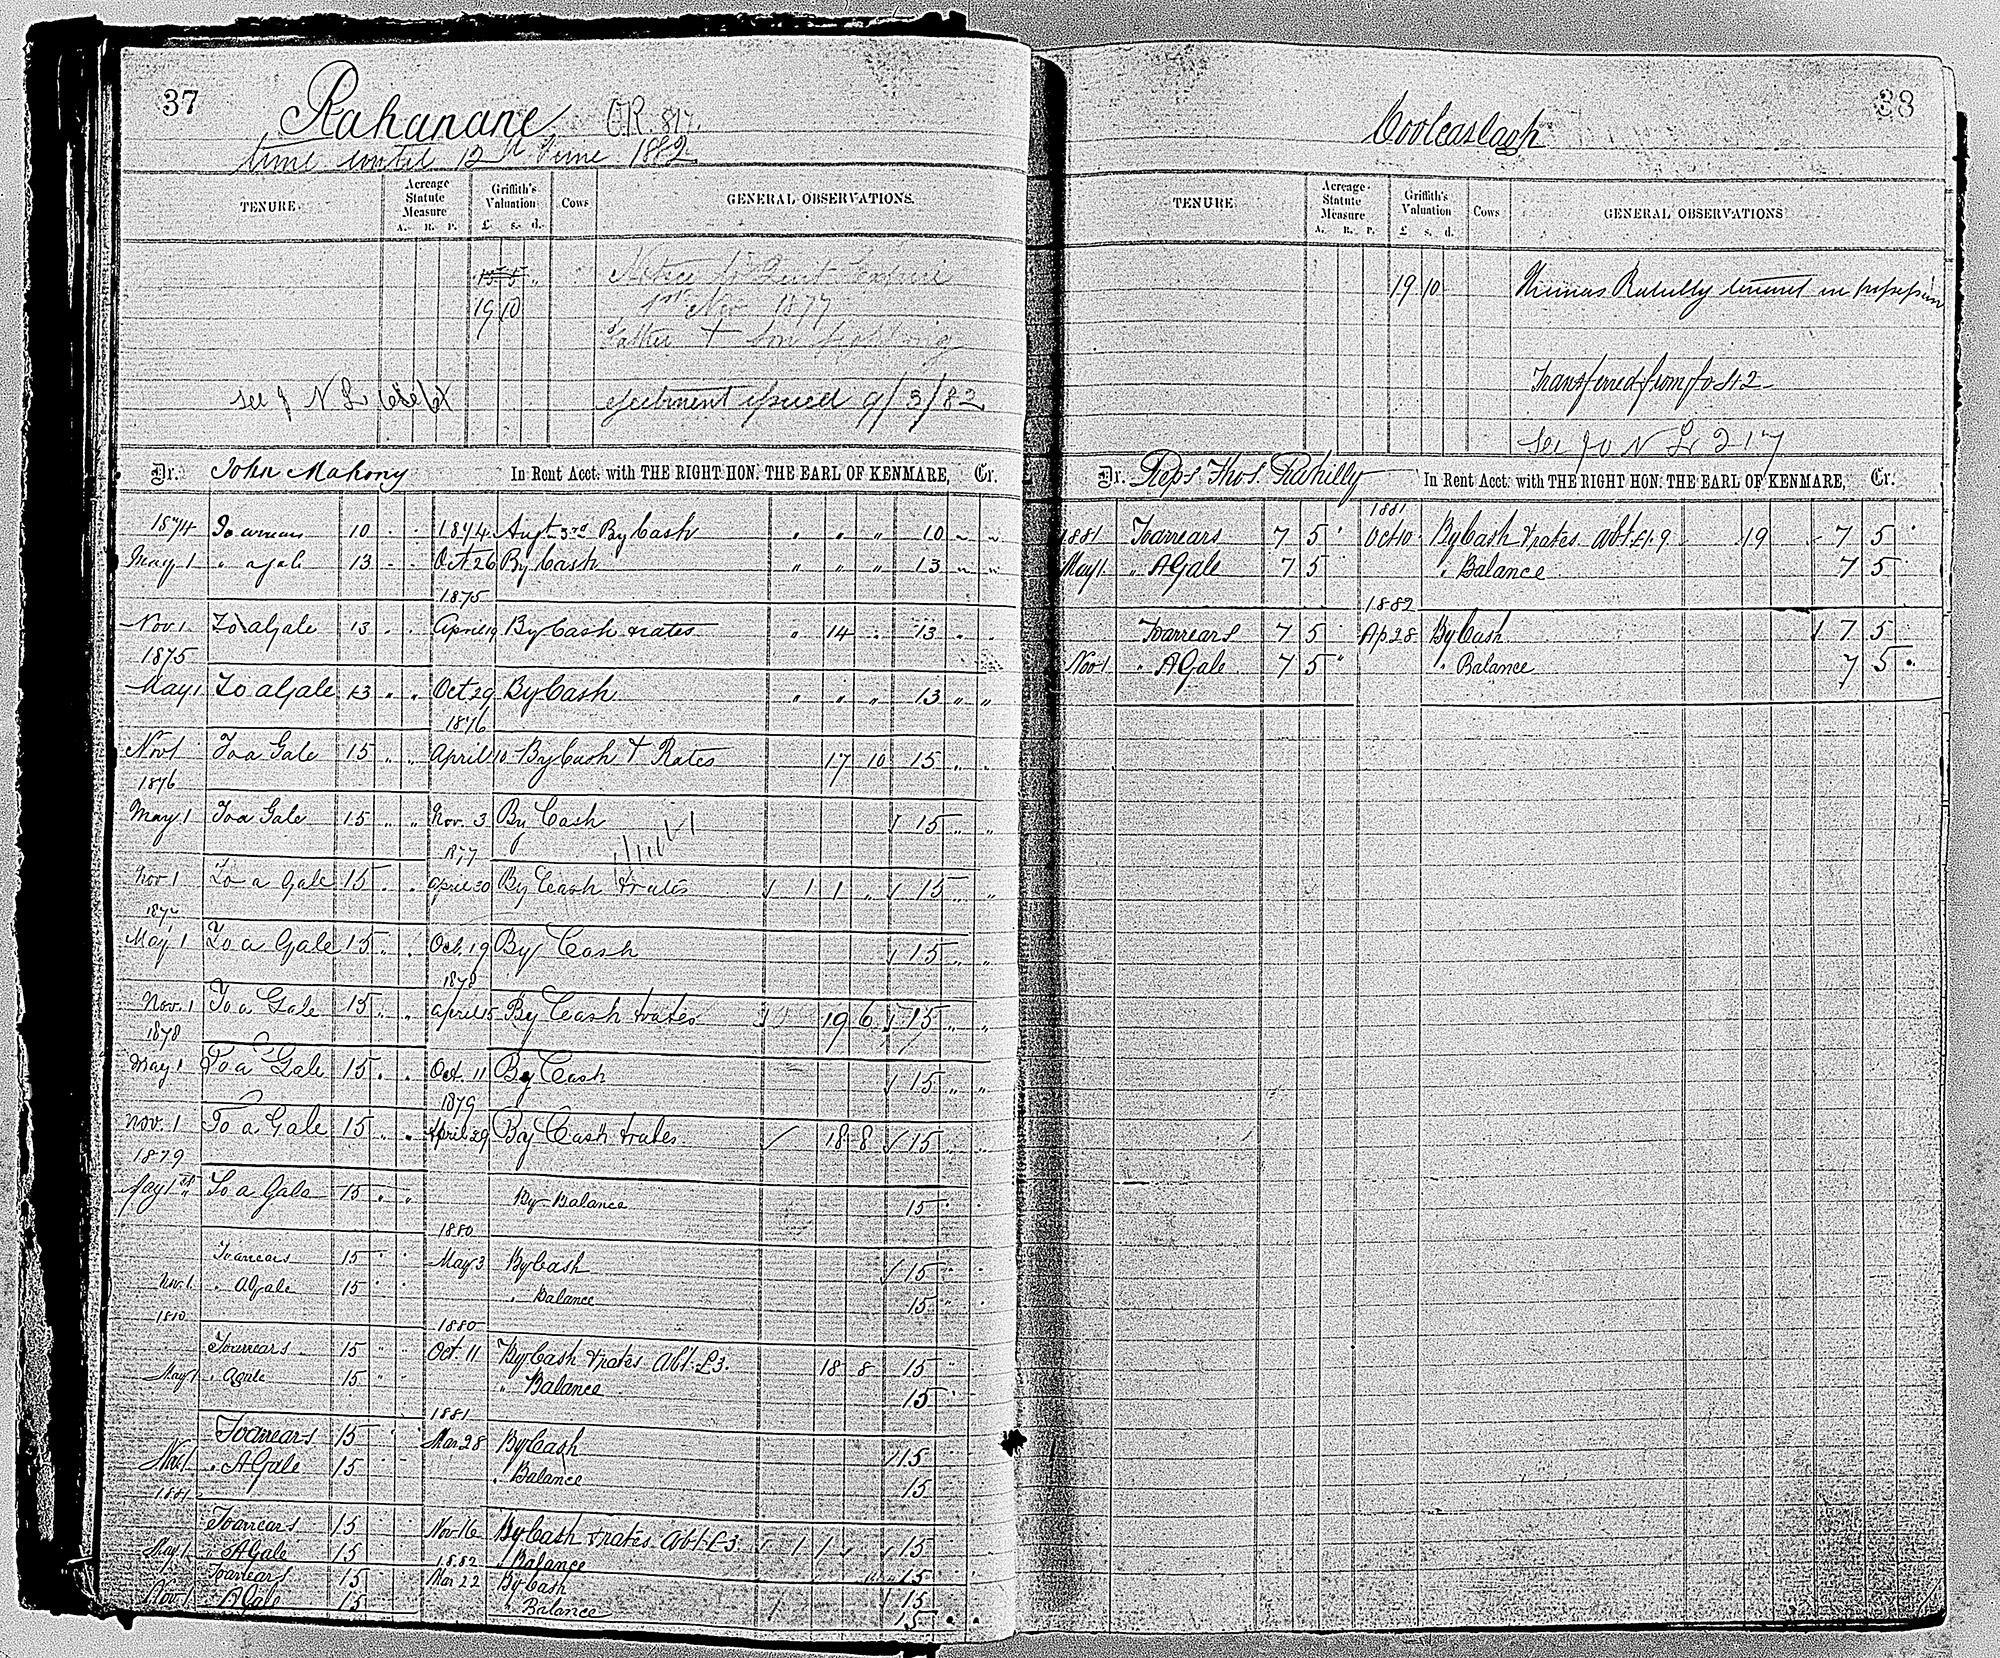 37
Rahanane O.R. 817
time until 12th June 1882
TENURE. Acreage Statute Measure A. R. P. Griffith's Valuation £ s. d. Cows GENERAL OBSERVATIONS.
15 5 " Notice to Quit
19 10 1st Nov 1877
Father + Son fighting
see f N L ejectment issued 9/3/82
Dr. John Mahony In Rent Acct. with THE RIGHT HON. THE EARL OF KENMARE, Cr.
1874 To arrears 10 " " 1874 Augt 3rd By Cash " " " 10 " "
May 1 " a gale 13 " " Oct 26 By Cash " " " 13 " "
1875
Nov. 1 To a Gale 13 " " April 19 By Cash & rates " 14 " 13 " "
1875
May 1 To a Gale 13 " " Oct 29 By Cash " " " 13 " "
1876
Nov 1 To a Gale 15 " " April 10 By Cash + Rates 17 10 15 " "
1876
May 1 To a Gale 15 " " Nov. 3 By Cash 15 " "
1877
Nov 1 To a Gale 15 " " April 30 By Cash & rates 1 1 " 15 " "
1877
May 1 To a Gale 15 " " Oct. 19 By Cash 15 " "
1878
Nov. 1 To a Gale 15 " " April 15 By Cash & rates 19 6 15 " "
1878
May 1 To a Gale 15 " " Oct. 11 By Cash 15 " "
1879
Nov. 1 To a Gale 15 " " April 29 By Cash & rates 18 8 15 " "
1879
May 1st To a Gale 15 " " By Balance 15 " "
1880
To arrears 15 " " May 3 By Cash 15 " "
Nov. 1 " A Gale 15 " " " Balance 15 " "
1880 1880
To arrears 15 " " Oct. 11 By Cash & rates Abt. £3. 18 8 15 "
May 1 " A gale 15 " " " Balance 15 "
1881
To arrears 15 " " Mar 28 By Cash 15
Nov 1 " A Gale 15 " Balance 15
1881
To arrears 15 Nov 16 By Cash & rates Abt. £3. 1 1 15
May 1 " A Gale 15 1882 " Balance 15
To arrears 15 Mar 22 By Cash 15
Nov 1 " A Gale 15 " Balance 15
38
Coolcaslagh
TENURE Acreage Statute Measure A. R. P. Griffith's Valuation £ s. d. Cows GENERAL OBSERVATIONS
19 10 Thomas Rahilly tenant in possession
Transferred from fo 42
See fo N Lr 217
Dr. Reps Thos. Rahilly In Rent Acct. with THE RIGHT HON. THE EARL OF KENMARE, Cr.
1881
1881 To arrears 7 5 " Oct 10 By Cash & rates Abt. £1.9 19 7 5 "
May 1 " A Gale 7 5 " Balance 7 5 "
1882
To arrears 7 5 " Ap 28 By Cash 7 5
Nov 1 " A Gale 7 5 " " Balance 7 5 "